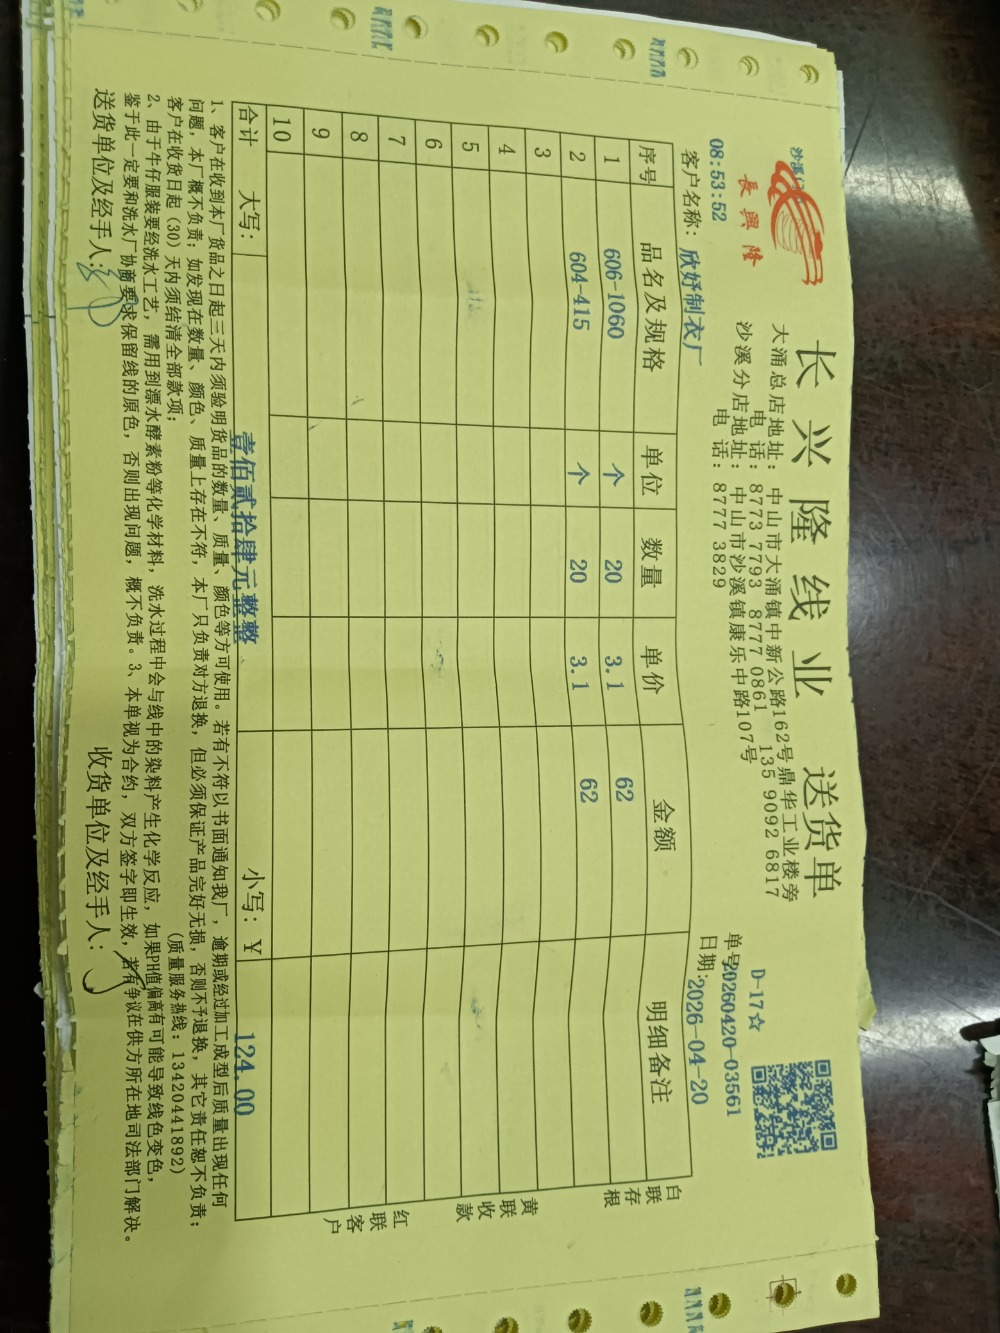 長興隆
长兴隆线业 送货单
大涌总店地址: 中山市大涌镇中新公路162号鼎华工业楼旁
电 话: 8773 7793 8777 0861 135 9092 6817
沙溪分店地址: 中山市沙溪镇康乐中路107号
电 话: 8777 3829
D-17☆
单号20260420-03561
日期:2026-04-20
08:53:52
客户名称: 欣妤制衣厂
序号 品名及规格 单位 数量 单价 金额 明细备注
1 606-1060 个 20 3.1 62
2 604-415 个 20 3.1 62
3
4
5
6
7
8
9
10
合计 大写: 壹佰贰拾肆元整整 小写: ¥ 124.00
白联存根
黄联收款
红联客户
1、客户在收到本厂货品之日起三天内须验明货品的数量、质量、颜色等方可使用。若有不符以书面通知我厂，逾期或经过加工成型后质量出现任何
问题，本厂概不负责；如发现在数量、颜色、质量上存在不符，本厂只负责对方退换，但必须保证产品完好无损，否则不予退换，其它责任恕不负责；
客户在收货日起（30）天内须结清全部款项； (质量服务热线: 13420441892)
2、由于牛仔服装要经洗水工艺，需用到漂水酵素粉等化学材料，洗水过程中会与线中的染料产生化学反应，如果PH值偏高有可能导致线色变色，
鉴于此一定要和洗水厂协商要求保留线的原色，否则出现问题，概不负责。3、本单视为合约，双方签字即生效，若有争议在供方所在地司法部门解决。
送货单位及经手人: 收货单位及经手人: